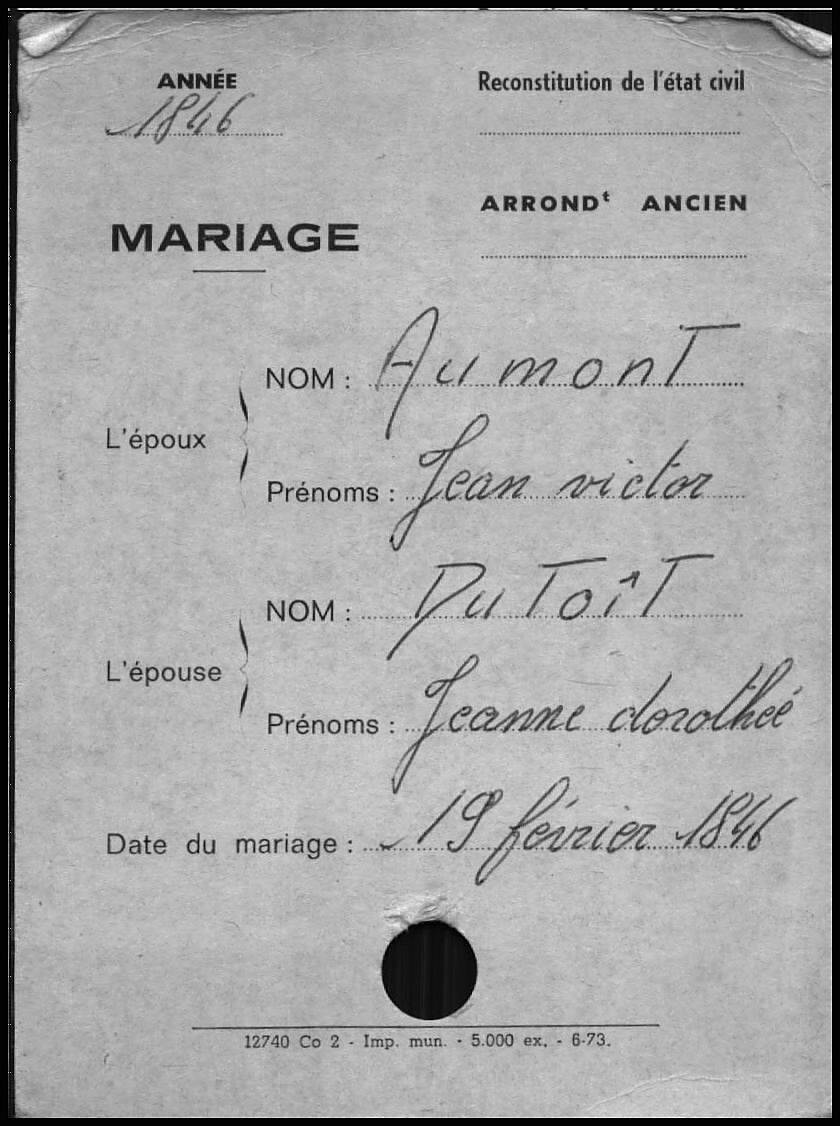 ANNÉE
1846
Reconstitution de l'état civil
ARRONDᵗ ANCIEN
MARIAGE
L'époux
NOM : Aumont
Prénoms : Jean victor
L'épouse
NOM : Dutoît
Prénoms : Jeanne dorothéé
Date du mariage : 19 février 1846
12740 Co 2 - Imp. mun. - 5.000 ex. - 6-73.